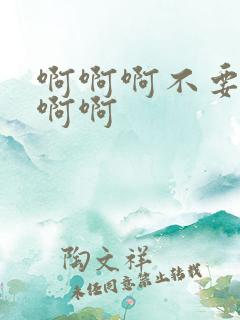 啊啊啊不要
啊啊
陶文祥
未经同意禁止转载